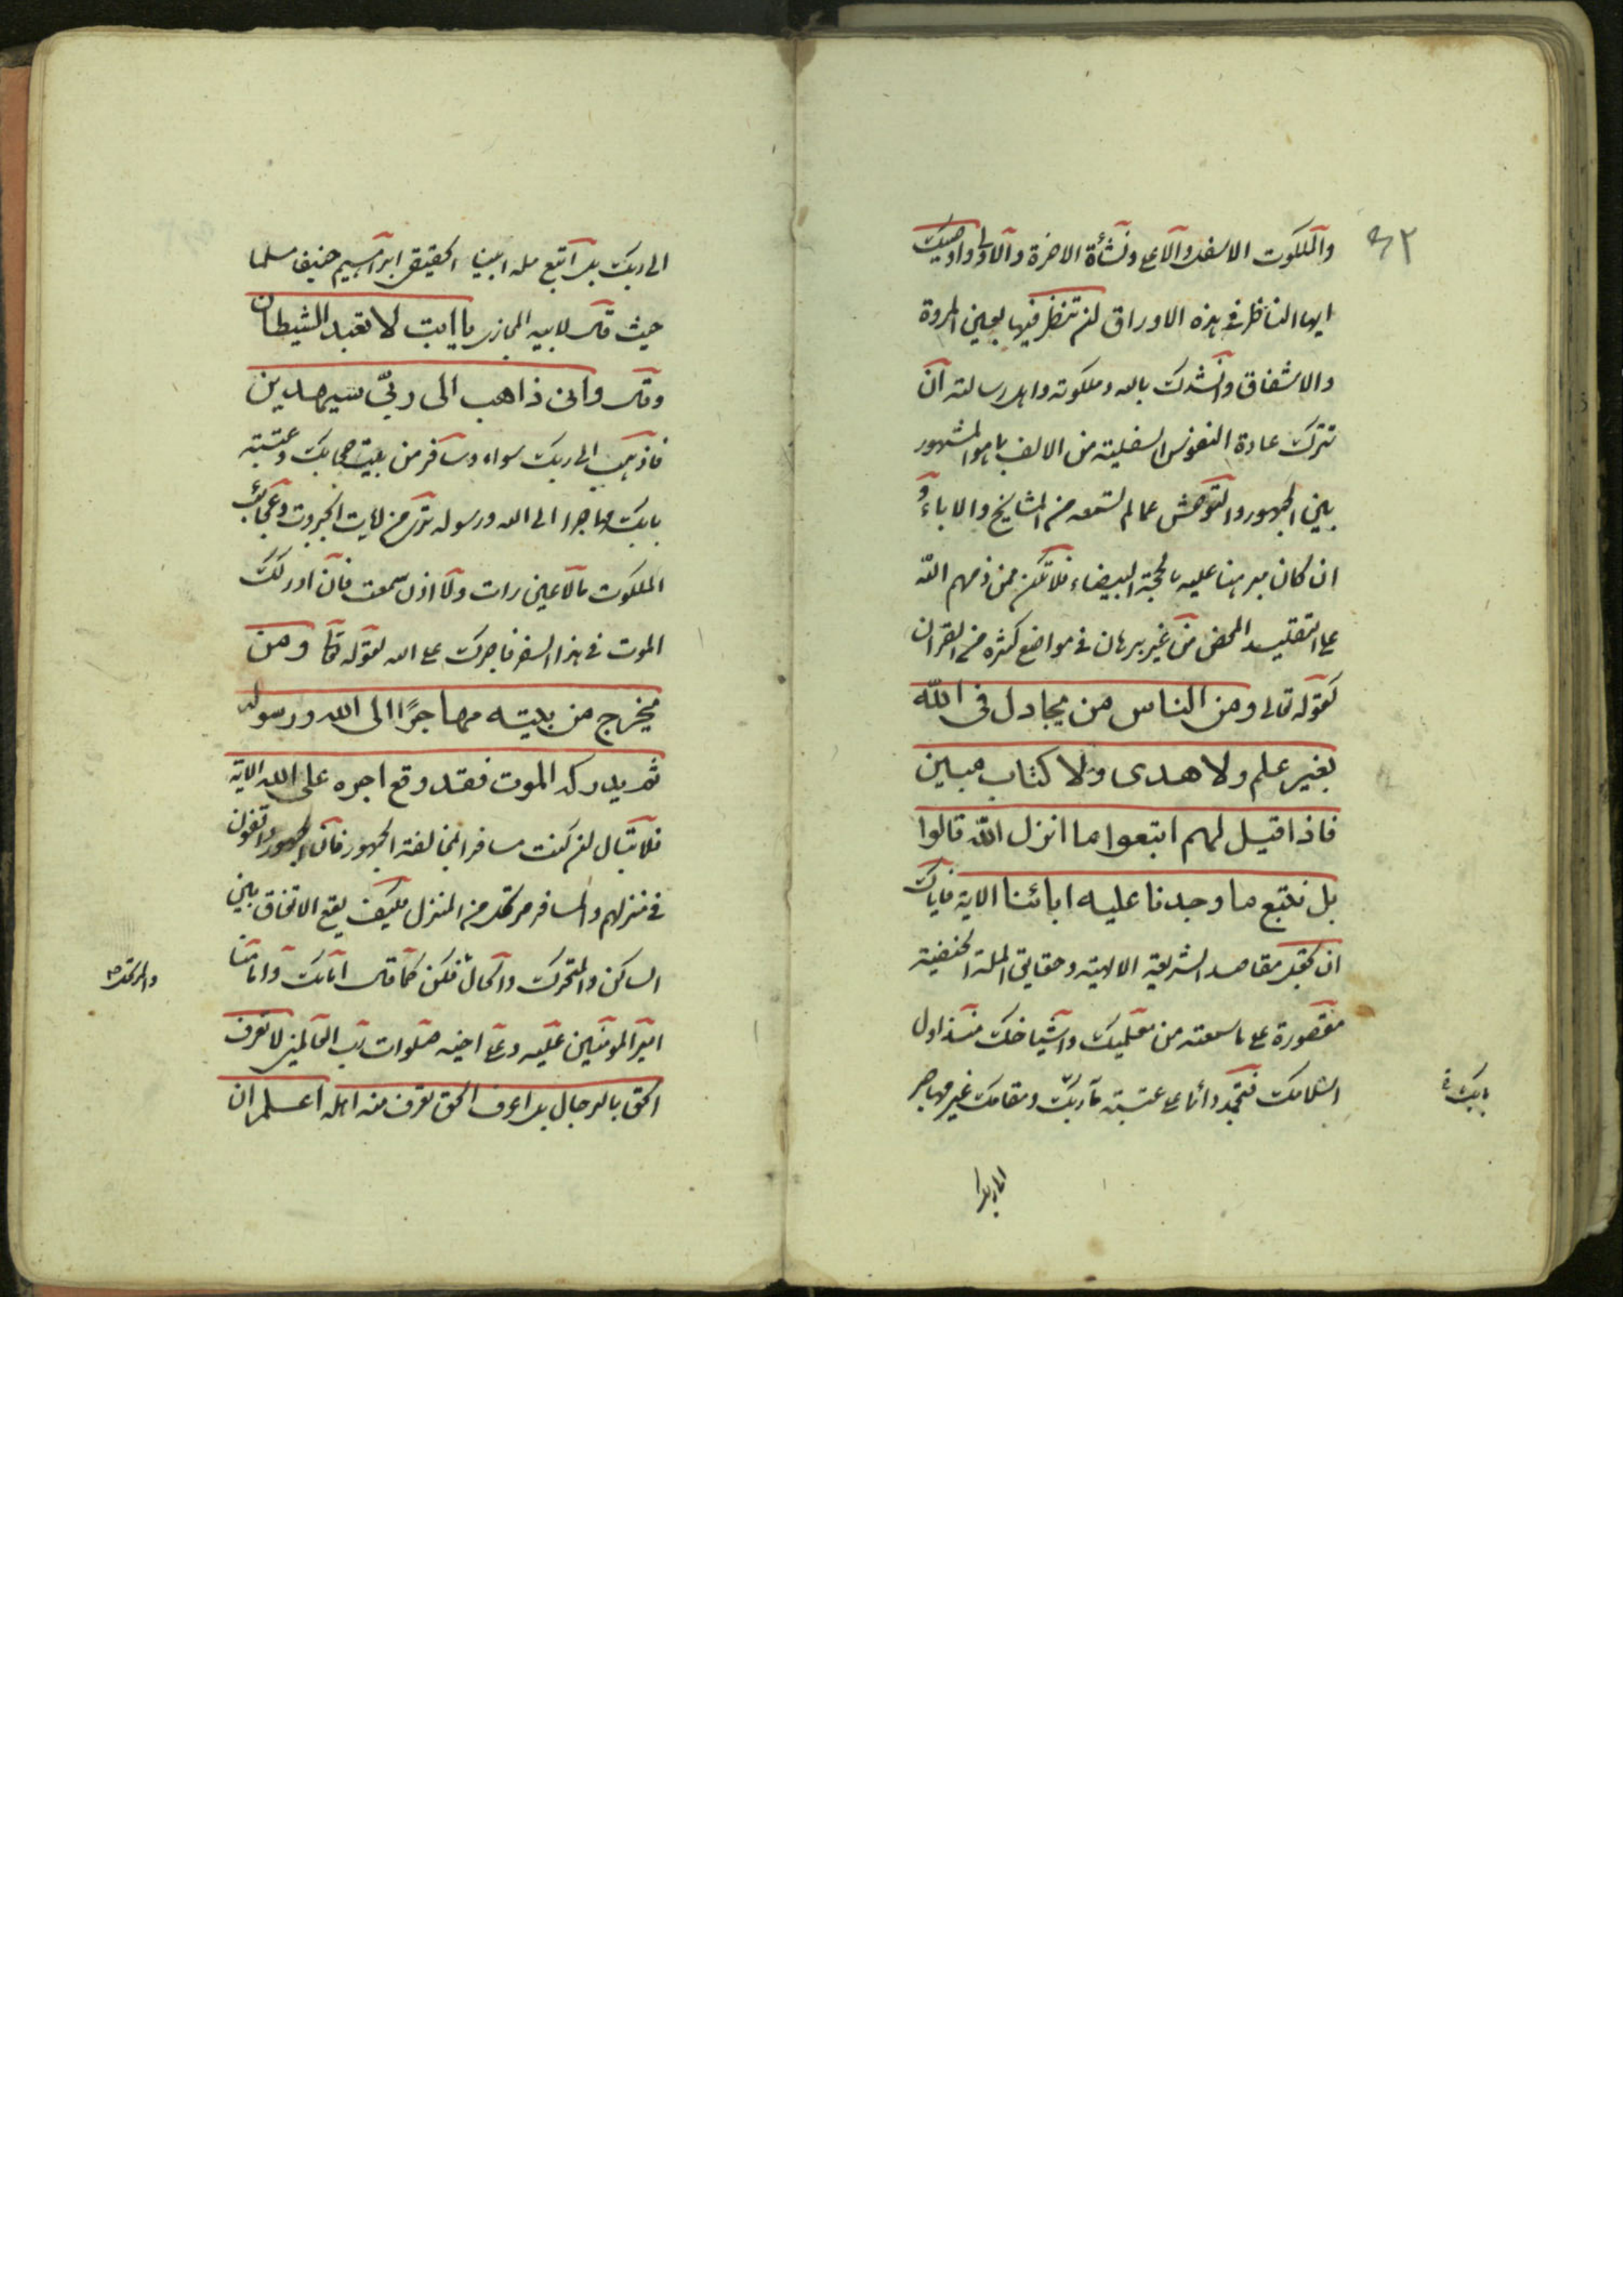 والملكوت الاسفل والاعلى ونشأة الاخرة والاولى واوصيك
ايها الناظر فى هذه الاوراق ان تنظر فيها بعين المروة
والاشفاق وانشدك بالله وملكوته واهل رسالته ان
تترك عادة النفوس السفلية من الالف بما هو المشهور
بين الجمهور والتوحش عما لم تسمعه من المشايخ والاباء و
ان كان مبرهنا عليه بالحجة البيضاء فلا تكن ممن ذمهم الله
على التقليد المحض من غير برهان فى مواضع كثيره من القران
كقوله تعالى ومن الناس من يجادل فى الله
بغير علم ولا هدى ولا كتاب مبين
فاذا قيل لهم اتبعوا ما انزل الله قالوا
بل نتبع ما وجدنا عليه ابائنا الاية فاياك
ان تجعل مقاصد الشريعة الالهية وحقايق الملة الحنيفية
مقصورة على ما سمعته من معلميك واشياخك منذ اول
اسلامك فتجمد دائما على عتبة بابك ومقامك غير مهاجر
بابك
الى ربك
٤٢
الى ربك بل اتبع ملة ابينا الحقيقى ابراهيم حنيفا مسلما
حيث قال لابيه المجازى يا ابت لا تعبد الشيطان
وقال وانى ذاهب الى ربى سيهدين
فاذهب الى ربك سواه وسافر من بيت حجابك وعتبة
بابك مهاجرا الى الله ورسوله ترى من ايات الجبروت وعجائب
الملكوت ما لا عين رات ولا اذن سمعت فان ادركك
الموت فى هذا السفر فاجرك على الله لقوله تعا ومن
يخرج من بيته مهاجرًا الى الله ورسوله
ثم يدركه الموت فقد وقع اجره على الله الاية
فلا تبال ان كنت مسافرا بمخالفة الجمهور فان الجمهور واقفون
فى منزلهم والمسافر مرتحل من المنزل فكيف يقع الاتفاق بين
الساكن والمتحرك والحال فكن كما قال امامك وامامنا
والمرتحل
امير المومنين عليه وعلى اخيه صلوات رب العالمين لا تعرف
الحق بالرجال بل اعرف الحق تعرف منه اهله اعلم ان